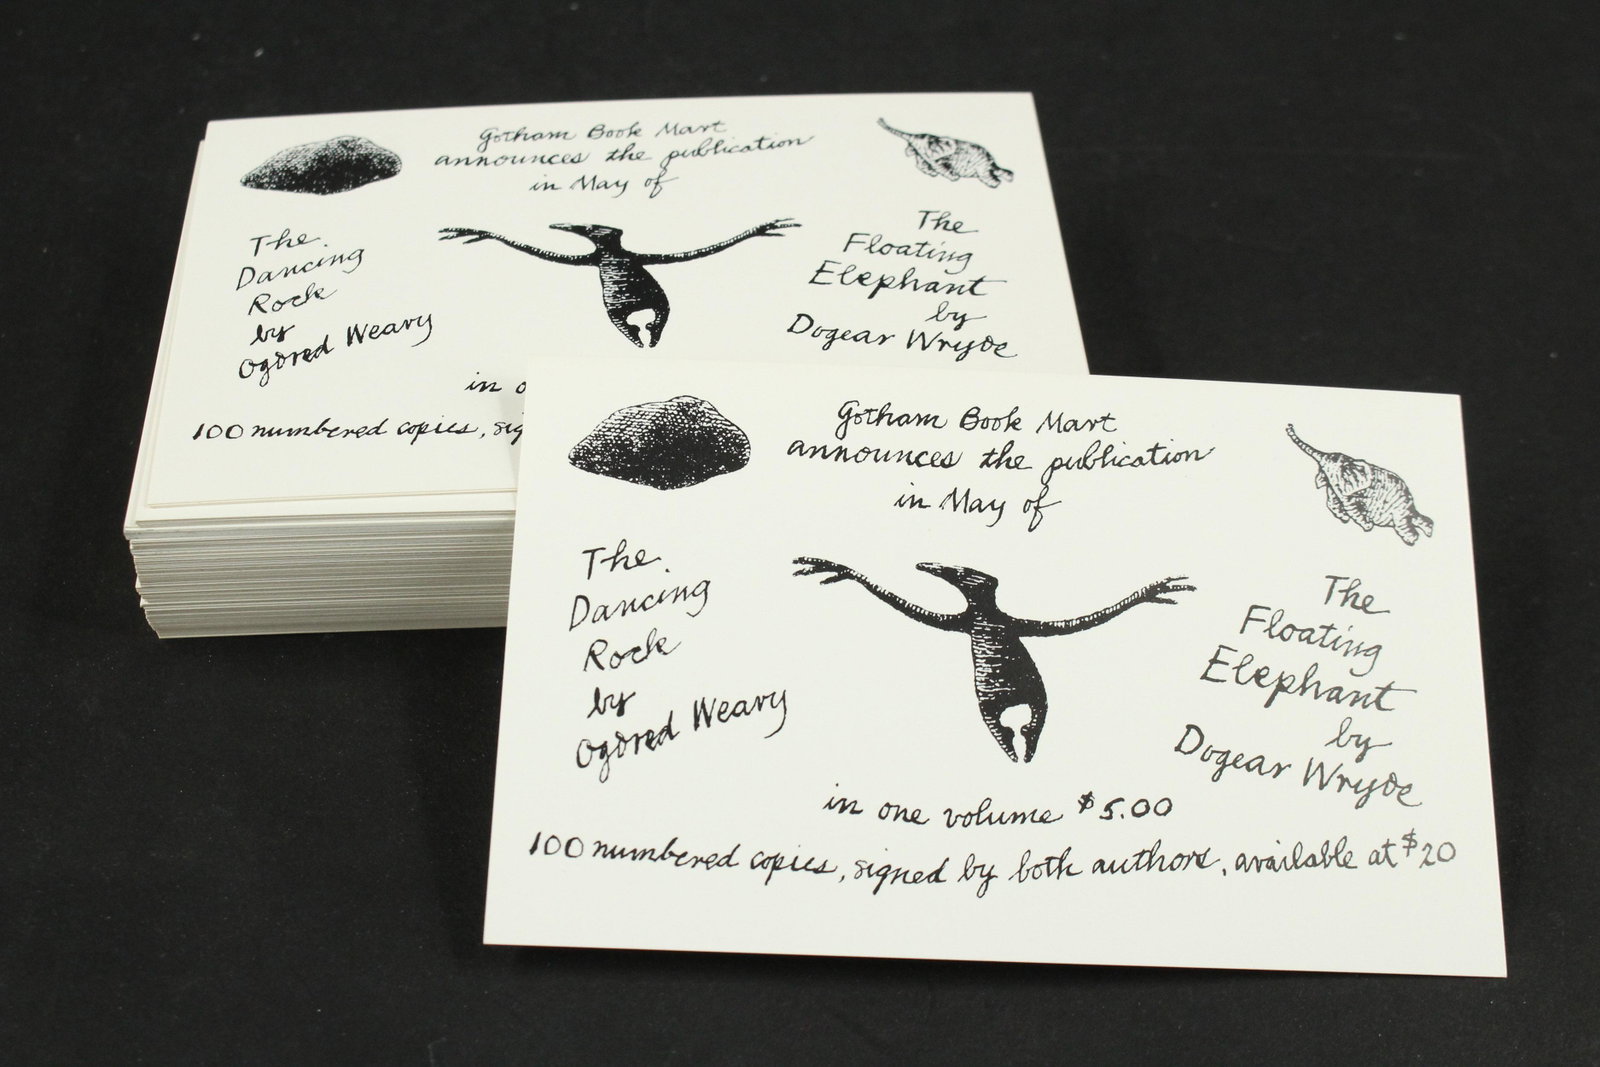 Gotham Book Mart
announces the publication
in May of
The
Dancing
Rock
by
Ogdred Weary
The
Floating
Elephant
by
Dogear Wryde
in o
100 numbered copies, sig
Gotham Book Mart
announces the publication
in May of
The
Dancing
Rock
by
Ogdred Weary
The
Floating
Elephant
by
Dogear Wryde
in one volume $5.00
100 numbered copies, signed by both authors, available at $20